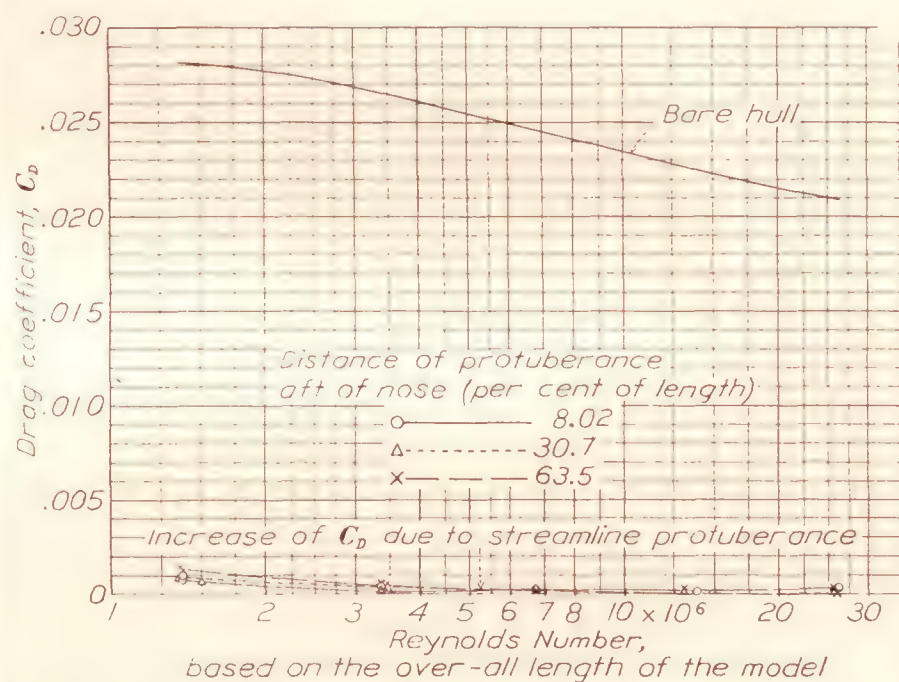 .030
.025
.020
.015
.010
.005
0
Drag coefficient, C_D
Bare hull
Distance of protuberance
aft of nose (per cent of length)
8.02
30.7
63.5
Increase of C_D due to streamline protuberance
1 2 3 4 5 6 7 8 10 × 10⁶ 20 30
Reynolds Number,
based on the over-all length of the model